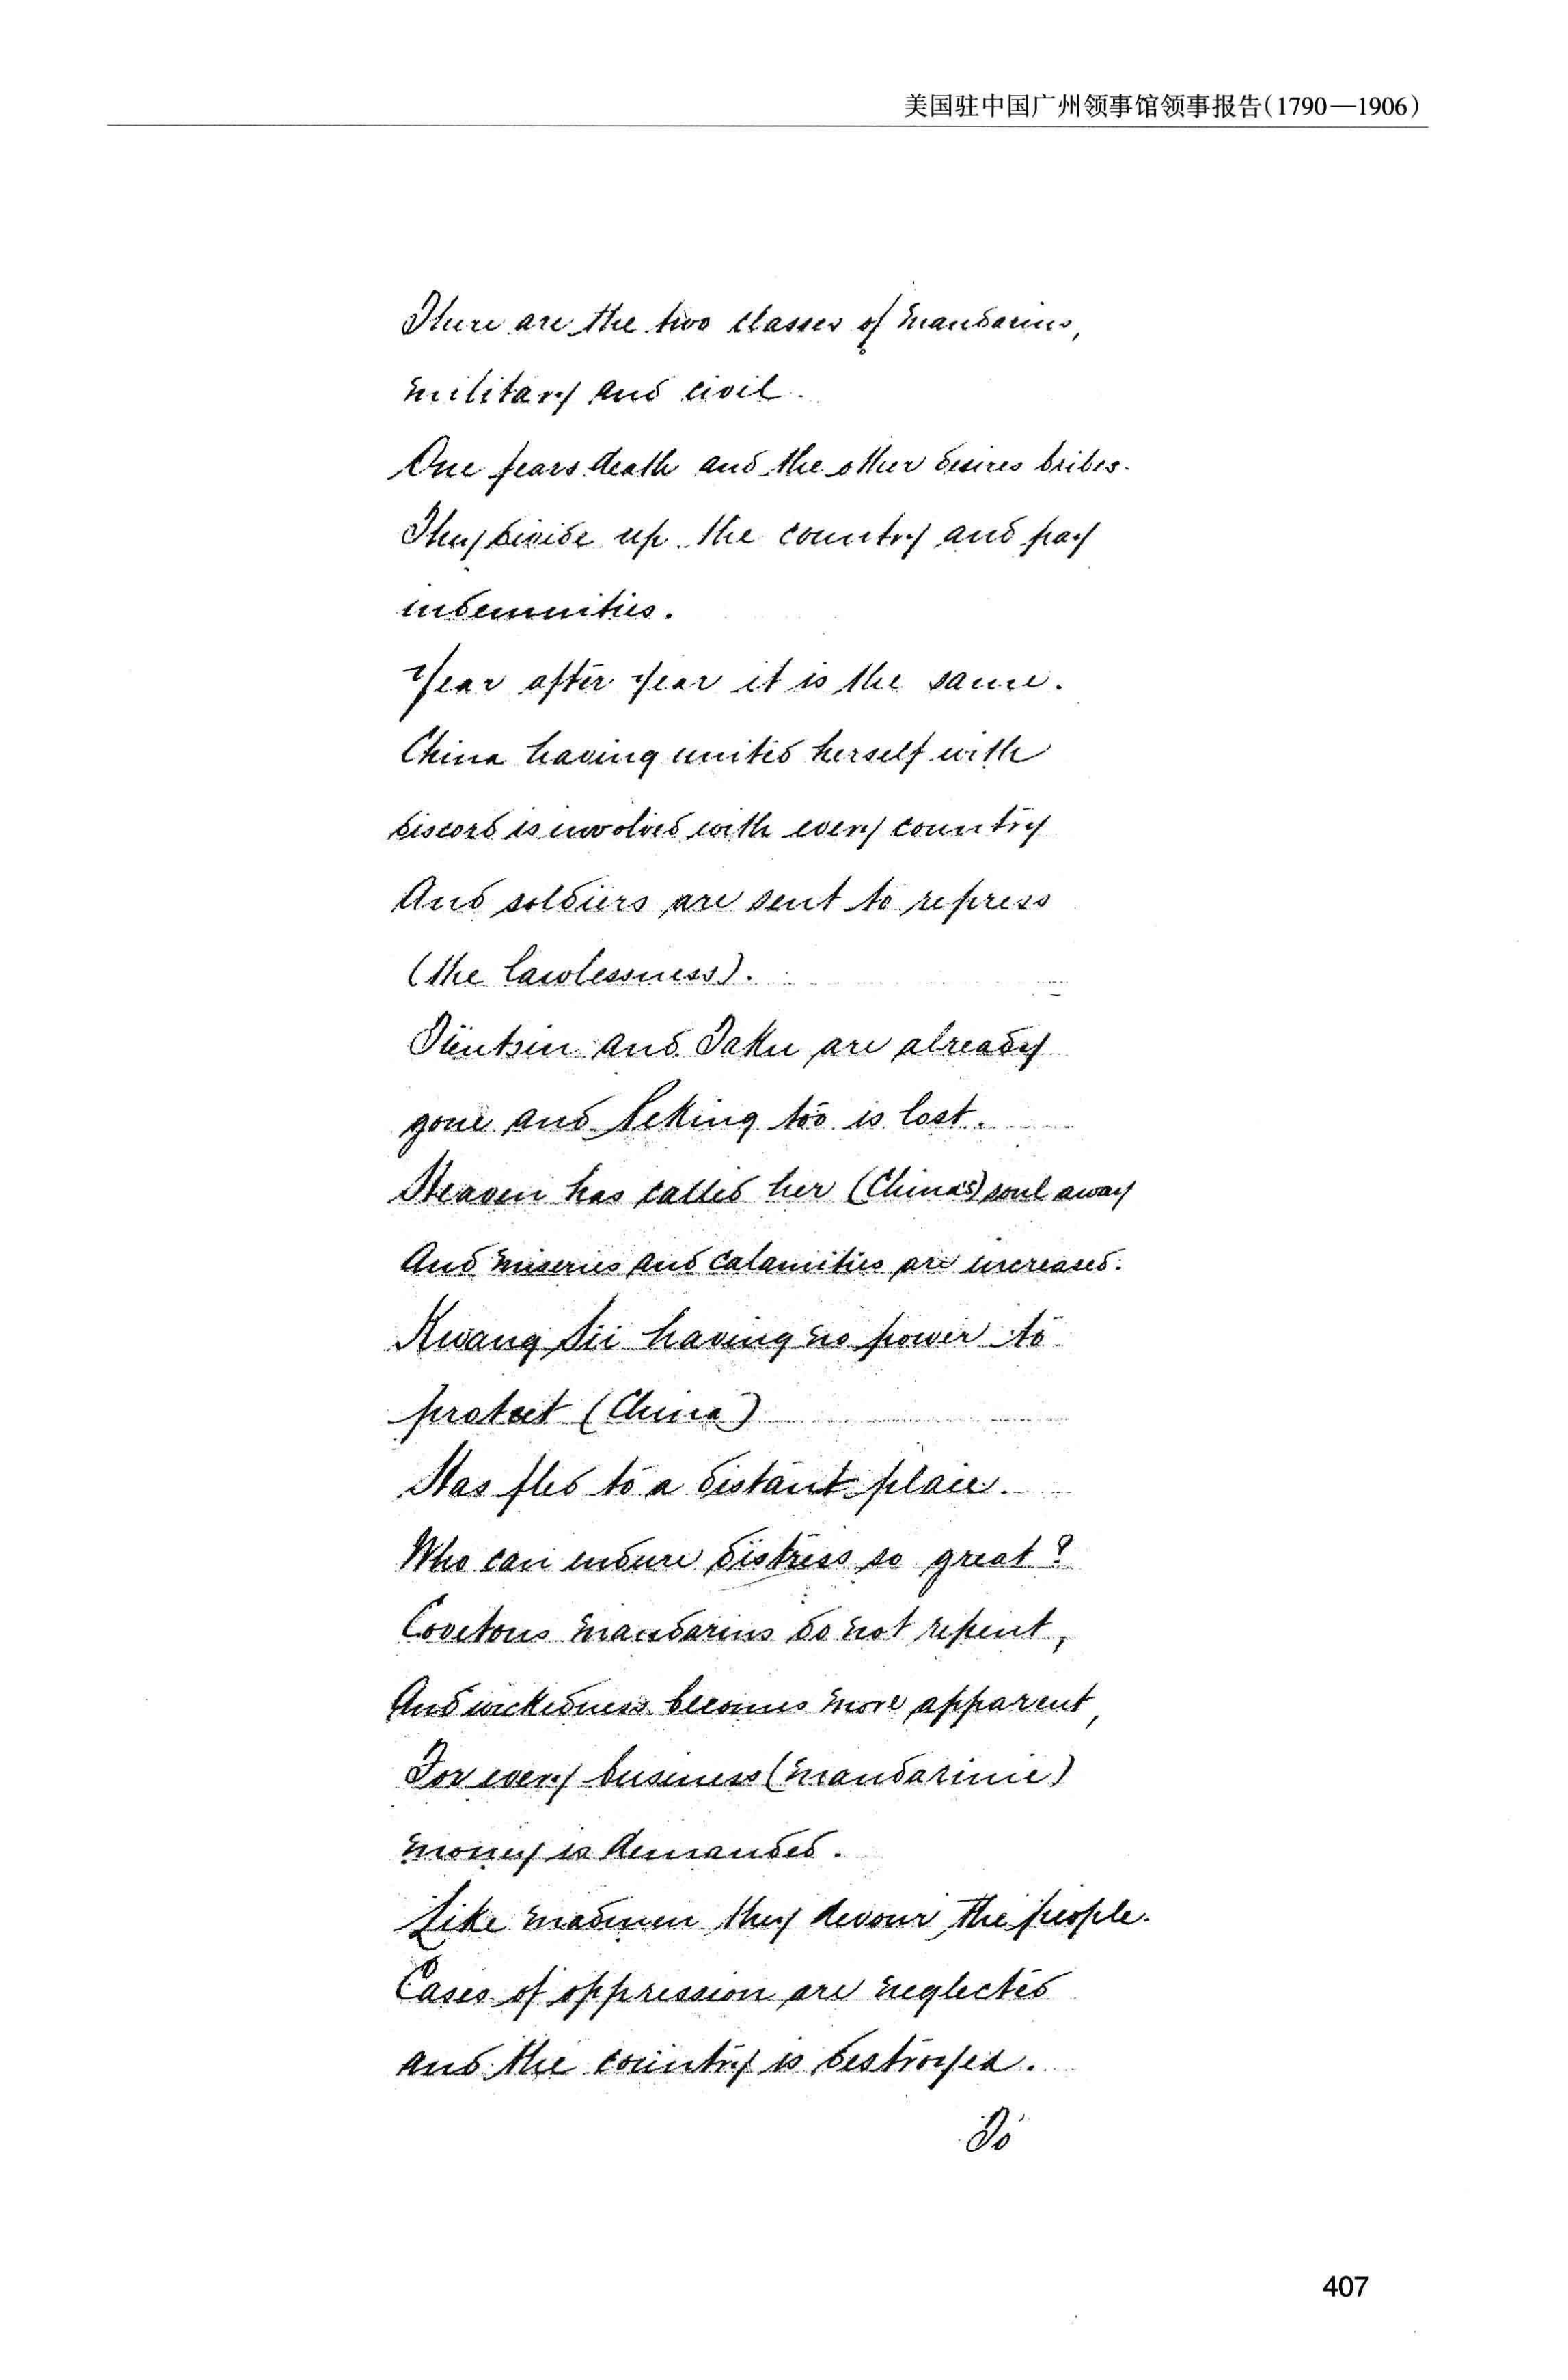 美国驻中国广州领事馆领事报告(1790—1906)
There are the two classes of mandarins,
military and civil.
One fears death and the other desires bribes.
They divide up the country and pay
indemnities.
Year after year it is the same.
China having united herself with
discord is involved with every country
And soldiers are sent to repress
(the lawlessness).
Tientsin and Taku are already
gone and Peking too is lost.
Heaven has called her (China's) soul away
And miseries and calamities are increased.
Kwang Sii having no power to
protect (China)
Has fled to a distant place.
Who can endure distress so great?
Covetous mandarins do not repent,
And wickedness becomes more apparent,
For every business (mandarinic)
money is demanded.
Like madmen they devour the people.
Cases of oppression are neglected
and the country is destroyed.
To
407